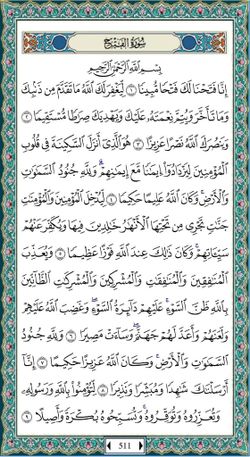 سُورَةُ الفَتْحِ
بِسْمِ اللَّهِ الرَّحْمَٰنِ الرَّحِيمِ
إِنَّا فَتَحْنَا لَكَ فَتْحًا مُّبِينًا ١ لِّيَغْفِرَ لَكَ اللَّهُ مَا تَقَدَّمَ مِن ذَنۢبِكَ
وَمَا تَأَخَّرَ وَيُتِمَّ نِعْمَتَهُۥ عَلَيْكَ وَيَهْدِيَكَ صِرَٰطًا مُّسْتَقِيمًا ٢
وَيَنصُرَكَ اللَّهُ نَصْرًا عَزِيزًا ٣ هُوَ الَّذِىٓ أَنزَلَ السَّكِينَةَ فِى قُلُوبِ
الْمُؤْمِنِينَ لِيَزْدَادُوٓا۟ إِيمَٰنًا مَّعَ إِيمَٰنِهِمْ ۗ وَلِلَّهِ جُنُودُ السَّمَٰوَٰتِ
وَالْأَرْضِ ۚ وَكَانَ اللَّهُ عَلِيمًا حَكِيمًا ٤ لِّيُدْخِلَ الْمُؤْمِنِينَ وَالْمُؤْمِنَٰتِ
جَنَّٰتٍ تَجْرِى مِن تَحْتِهَا الْأَنْهَٰرُ خَٰلِدِينَ فِيهَا وَيُكَفِّرَ عَنْهُمْ
سَيِّـَٔاتِهِمْ ۚ وَكَانَ ذَٰلِكَ عِندَ اللَّهِ فَوْزًا عَظِيمًا ٥ وَيُعَذِّبَ
الْمُنَٰفِقِينَ وَالْمُنَٰفِقَٰتِ وَالْمُشْرِكِينَ وَالْمُشْرِكَٰتِ الظَّآنِّينَ
بِاللَّهِ ظَنَّ السَّوْءِ ۚ عَلَيْهِمْ دَآئِرَةُ السَّوْءِ ۖ وَغَضِبَ اللَّهُ عَلَيْهِمْ
وَلَعَنَهُمْ وَأَعَدَّ لَهُمْ جَهَنَّمَ ۖ وَسَآءَتْ مَصِيرًا ٦ وَلِلَّهِ جُنُودُ
السَّمَٰوَٰتِ وَالْأَرْضِ ۚ وَكَانَ اللَّهُ عَزِيزًا حَكِيمًا ٧ إِنَّآ
أَرْسَلْنَٰكَ شَٰهِدًا وَمُبَشِّرًا وَنَذِيرًا ٨ لِّتُؤْمِنُوا۟ بِاللَّهِ وَرَسُولِهِۦ
وَتُعَزِّرُوهُ وَتُوَقِّرُوهُ ۚ وَتُسَبِّحُوهُ بُكْرَةً وَأَصِيلًا ٩
511